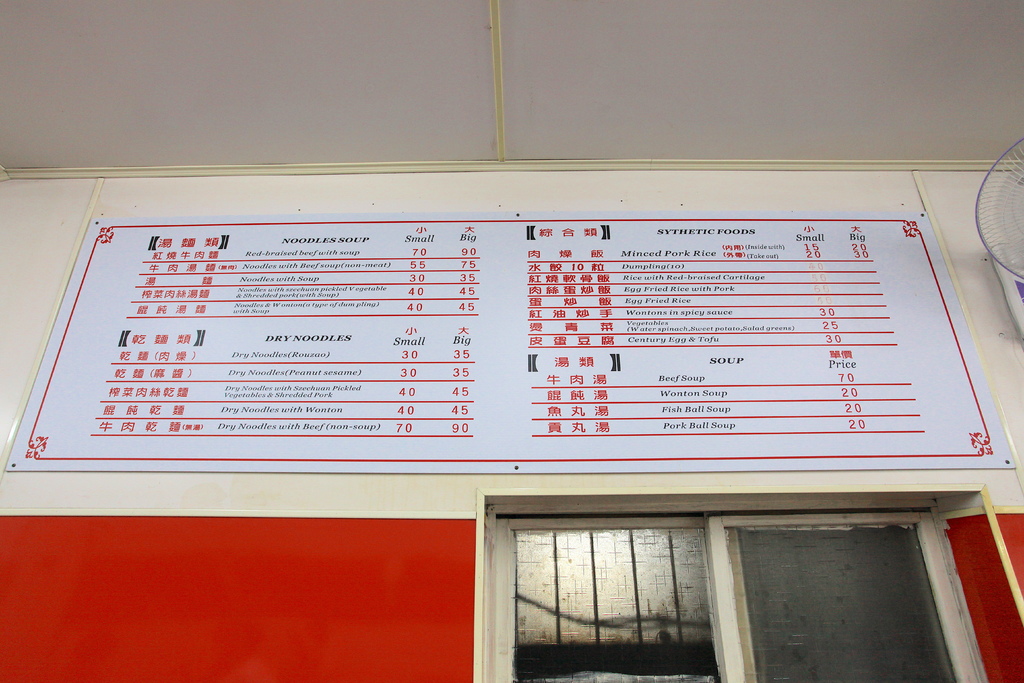 【湯麵類】 NOODLES SOUP 小 Small 大 Big
紅燒牛肉麵 Red-braised beef with soup 70 90
牛肉湯麵(無肉) Noodles with Beef soup(non-meat) 55 75
湯麵 Noodles with Soup 30 35
榨菜肉絲湯麵 Noodles with szechuan pickled Vegetable & Shredded pork(with Soup) 40 45
餛飩湯麵 Noodles & Wonton(a type of dumpling) with Soup 40 45
【乾麵類】 DRY NOODLES 小 Small 大 Big
乾麵(肉燥) Dry Noodles(Rouzao) 30 35
乾麵(麻醬) Dry Noodles(Peanut sesame) 30 35
榨菜肉絲乾麵 Dry Noodles with Szechuan Pickled Vegetables & Shredded Pork 40 45
餛飩乾麵 Dry Noodles with Wonton 40 45
牛肉乾麵(無湯) Dry Noodles with Beef (non-soup) 70 90
【綜合類】 SYTHETIC FOODS 小 Small 大 Big
肉燥飯 Minced Pork Rice (內用)(Inside with) 15 20
(外帶)(Take out) 20 30
水餃10粒 Dumpling(10)
紅燒軟骨飯 Rice with Red-braised Cartilage
肉絲蛋炒飯 Egg Fried Rice with Pork
蛋炒飯 Egg Fried Rice
紅油炒手 Wontons in spicy sauce 30
燙青菜 Vegetables (Water spinach,Sweet potato,Salad greens) 25
皮蛋豆腐 Century Egg & Tofu 30
【湯類】 SOUP 單價 Price
牛肉湯 Beef Soup 70
餛飩湯 Wonton Soup 20
魚丸湯 Fish Ball Soup 20
貢丸湯 Pork Ball Soup 20